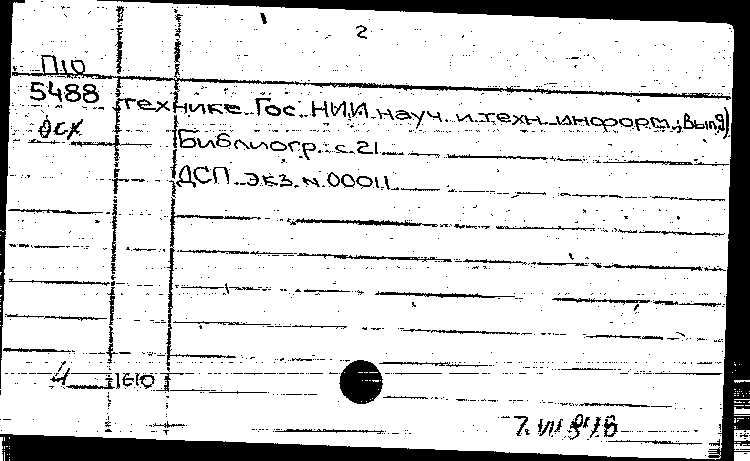 2
П10
5488 технике. Гос. НИИ науч. и техн. информ., Вып. 9)
дсх
Библиогр.: с. 21
ДСП. Экз. N 00011
4 1610
7. VII